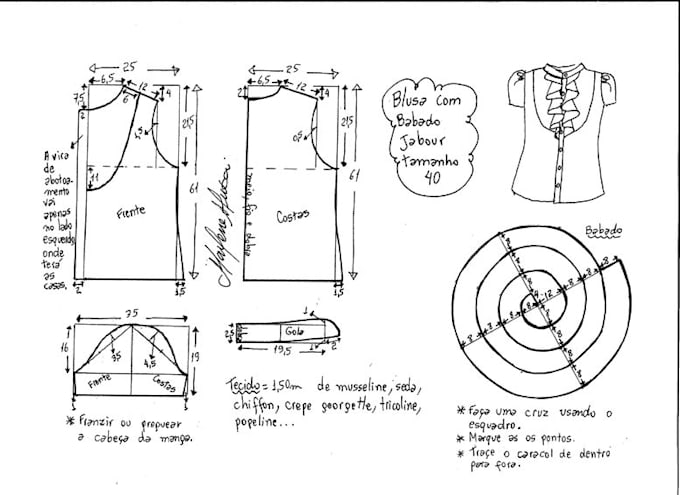 25
6,5
12
4
7,5
6
2
1,5
21,5
61
11
A vira
de
abotoa-
mento
vai
apenas
no lado
esquerdo
onde
terá
as
casas.
Frente
2
1,5
Marlene Mukai
25
6,5
12
4
2
0,5
21,5
61
meio, fio e dobra
Costas
1,5
Blusa com
Babado
Jabour
tamanho
40
Babado
75
16
19
3,5
4,5
Frente
Costas
* Franzir ou preguear
a cabeça da manga.
1
2,5
Gola
19,5
1
2
Tecido = 1,50m de musseline, seda,
chiffon, crepe georgette, tricoline,
popeline...
8 8 8 4
8 8 8 12 8 8 8
8 8 8
* Faça uma cruz usando o
esquadro.
* Marque as os pontos.
* Traçe o caracol de dentro
para fora.